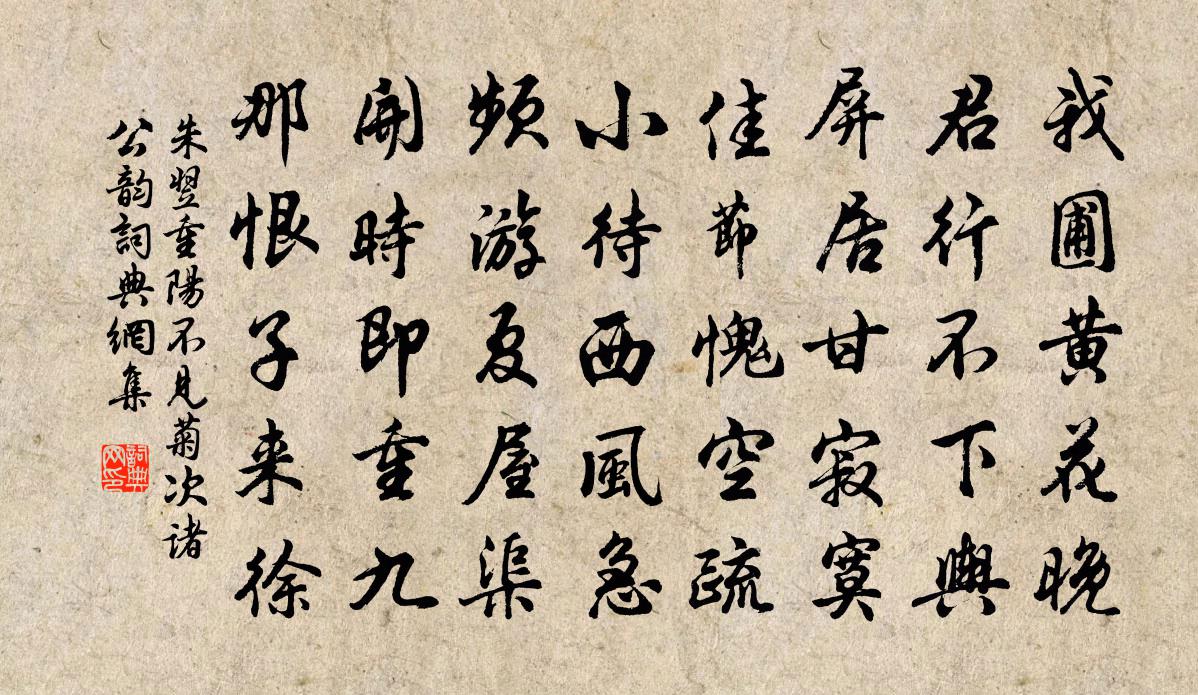 我圃黄花晚
君行不下輿
屏居甘寂寞
佳節愧空疏
小待西風急
頻游夏屋渠
開時即重九
那恨子来徐
朱翌重陽不見菊次諸
公韵詞典網集
詞典
网印